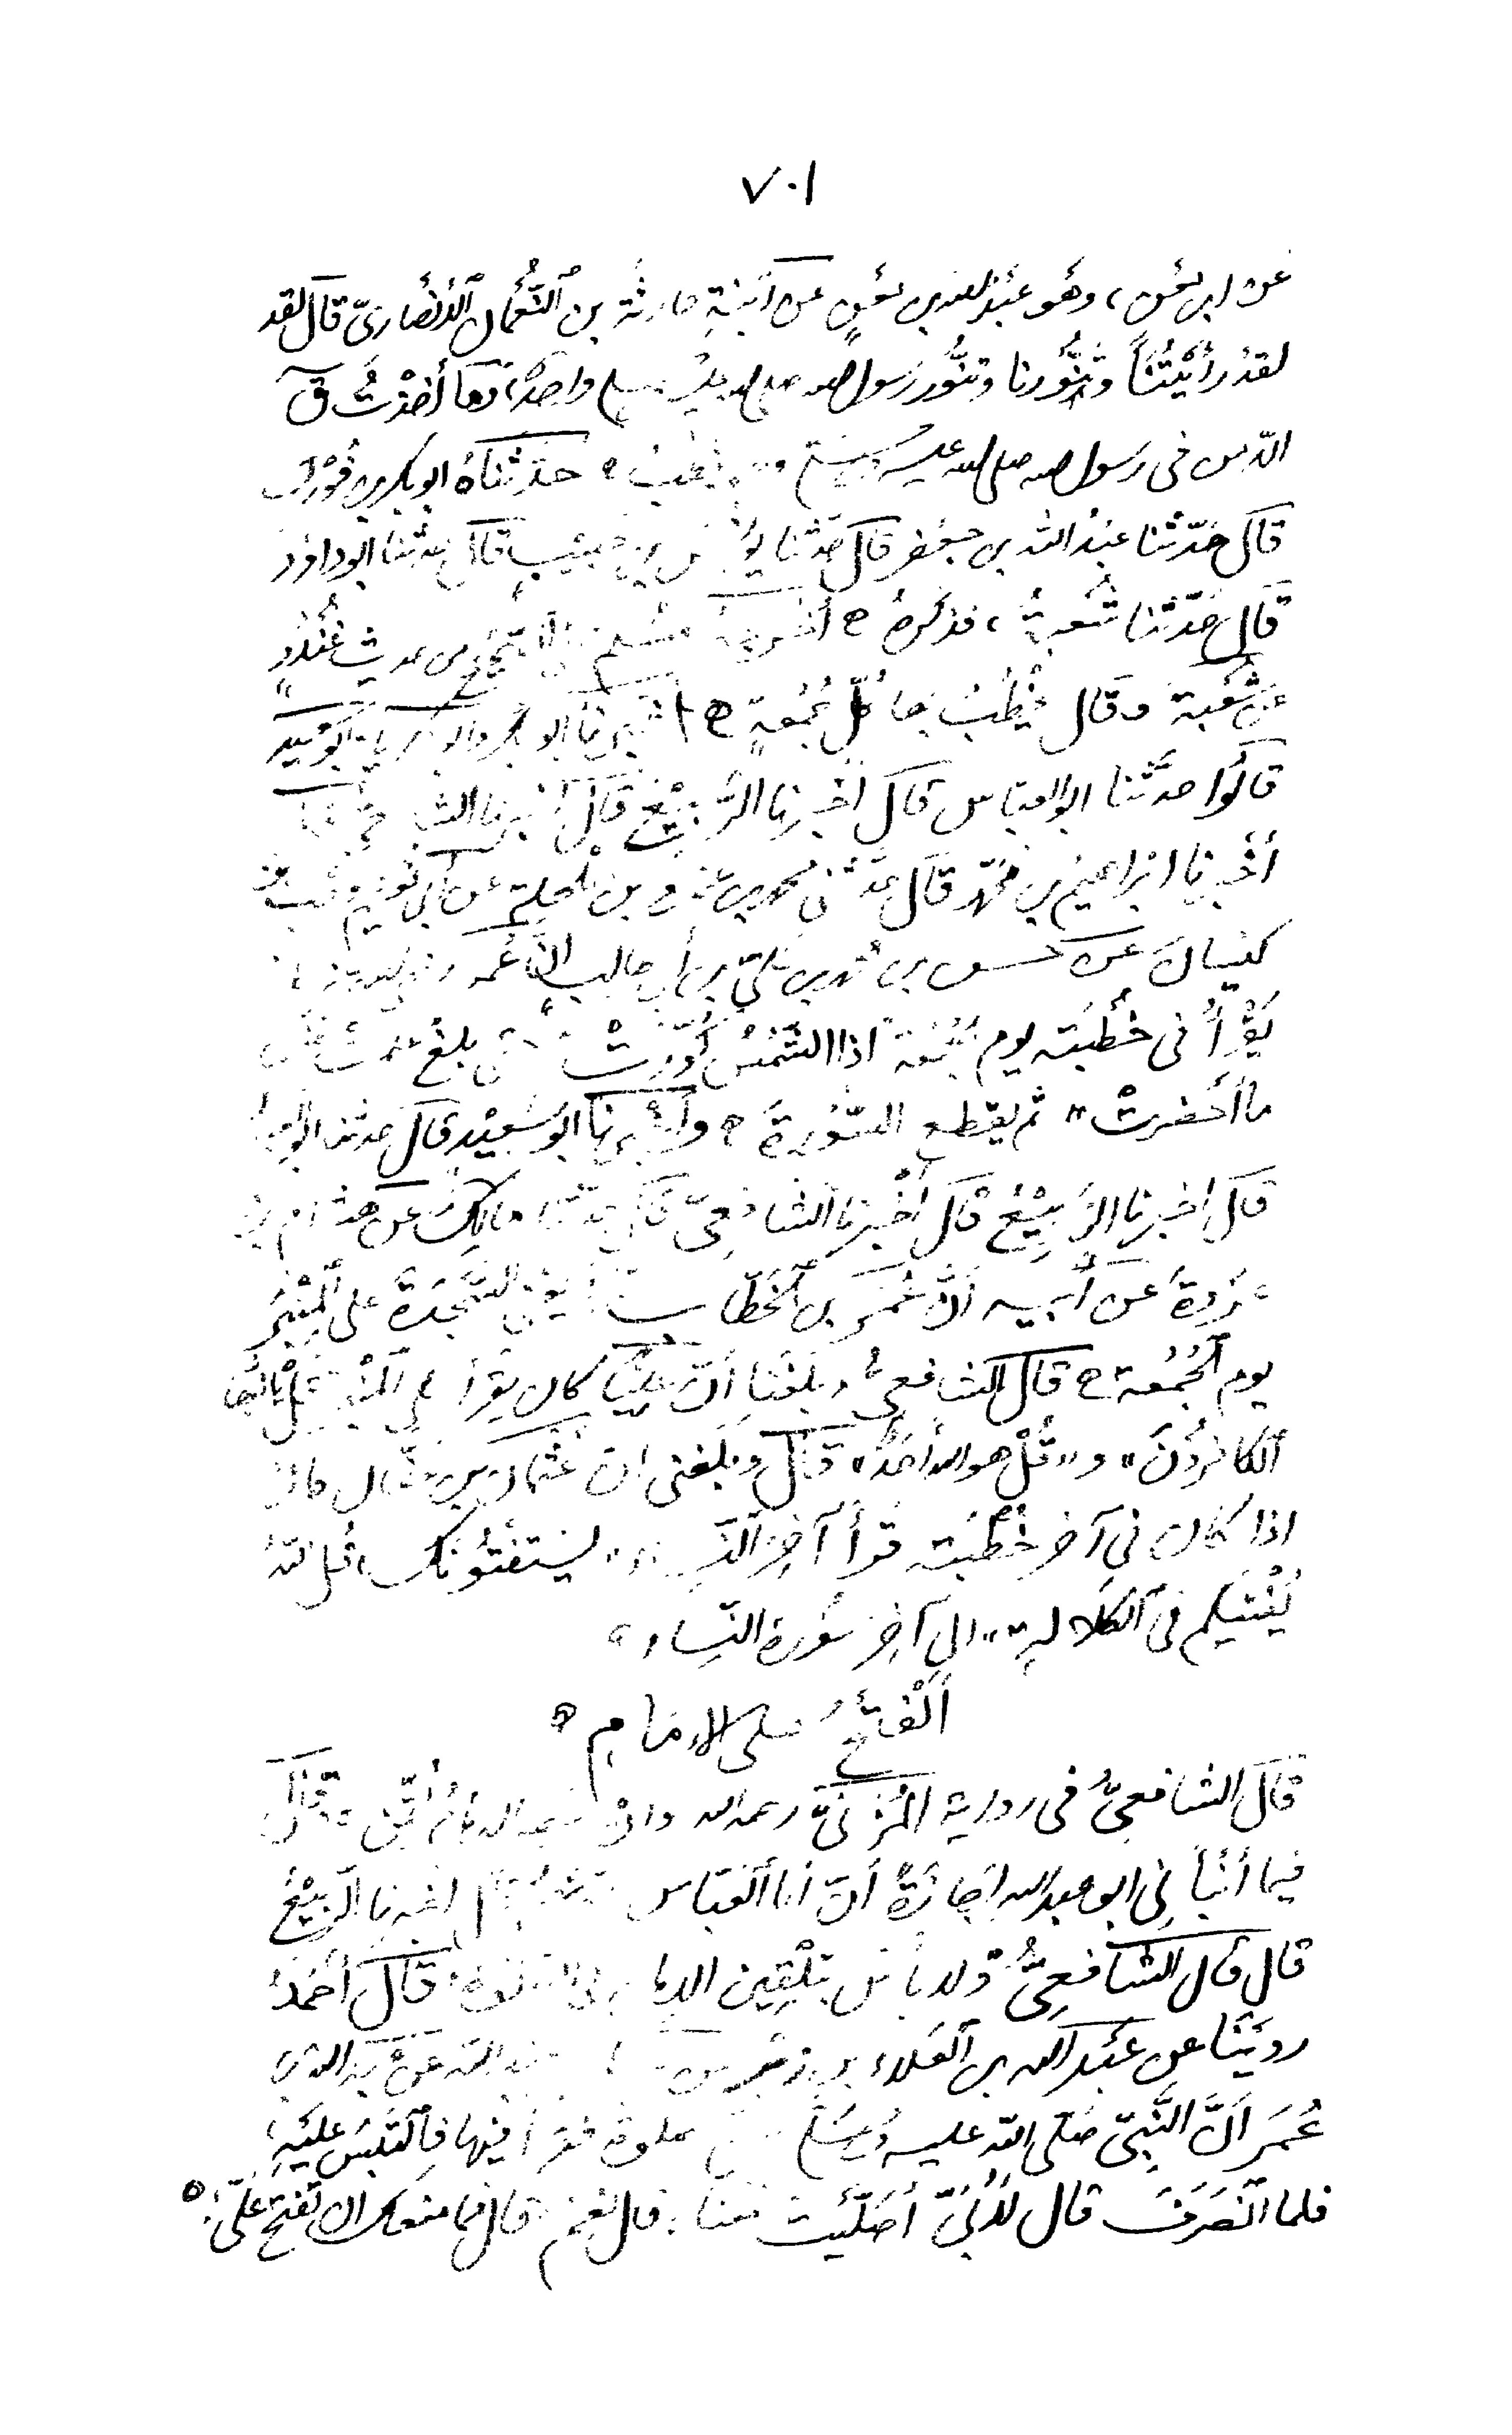 ٧٠١
عن ابن معن، وهو عبد الله بن معن عن ابنة حارثة بن النعمان الأنصاري قال لقد
لقد رأيتنا وتنورنا وتنور رسول الله صلى الله عليه وسلم واحدًا، وما أخذت ق
الا من في رسول الله صلى الله عليه وسلم يخطب ه حدثناه ابو بكر بن فورك
قال حدّثنا عبد الله بن جعفر قال حدثنا يونس بن حبيب قال حدثنا ابو داود
قال حدّثنا شعبة، فذكره ه أخرجه مسلم في الصحيح من حديث غندر
عن شعبة وقال يخطب بها كلّ جمعة ه أخبرنا ابو بكر وابو زكريا وابو سعيد
قالوا حدثنا ابو العباس قال أخبرنا الربيع قال أخبرنا الشافعي قال
أخبرنا ابراهيم بن محمد قال حدثني محمد بن عمرو بن حلحلة عن أبي نعيم وهب بن
كيسان عن حسن بن محمد بن علي بن أبي طالب أنّ عمر
يقرأ في خطبته يوم الجمعة اذا الشمس كوّرت حتى بلغ علمت نفس
ما أحضرت" ثم يقطع السورة ه وأخبرنا ابو سعيد قال حدثنا ابو العباس
قال اخبرنا الربيع قال أخبرنا الشافعيّ قال حدثنا مالك عن هشام بن
عروة عن أبيه أنّ عمر بن الخطاب السجدة على المنبر
يوم الجمعة ه قال الشافعي، وبلغنا أنّ عليًّا كان يقرأ على المنبر قل يا أيها
الكافرون" و"قل هو الله أحد" قال وبلغني ان عثمان بن عفان كان
اذا كان في آخر خطبته قرأ آخر النساء " يستفتونك قل الله
يفتيكم في الكلالة" الى آخر سورة النساء ه
الفتح على الإمام ه
قال الشافعيّ في رواية المزنيّ رحمه الله وان حصر الإمام لقّن وقال
فيما أنبأني ابو عبد الله إجازة أنّ أبا العباس حدثهم أخبرنا الربيع
قال قال الشافعيّ ولا بأس بتلقين الإمام في الصلاة قال أحمد
روينا عن عبد الله بن العلاء بن زبر عن عبد الله بن
عمر أنّ النبيّ صلى الله عليه وسلم صلى صلوة فقرأ فيها فالتبس عليه
فلما انصرف قال لأبيّ أصلّيت معنا، قال نعم قال فما منعك ان تفتح عليّ؟ ه